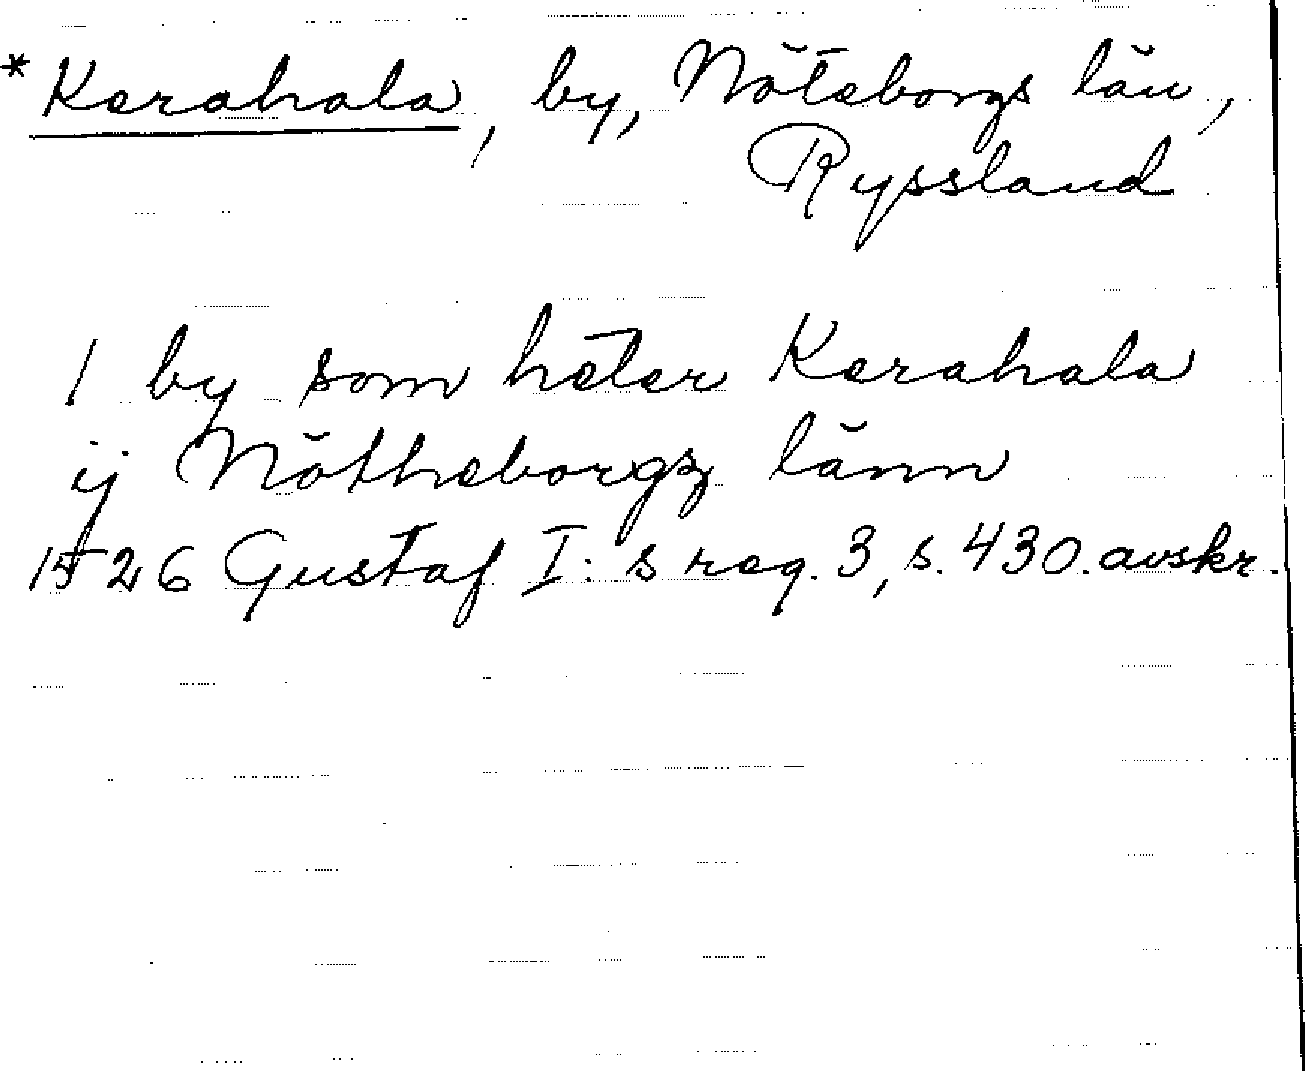 * Kerahala, by, Nöteborgs län,
Ryssland
1 by som heter Kerahala
ij Nötheborgz länn
1526 Gustaf I:s reg. 3, s. 430. avskr.